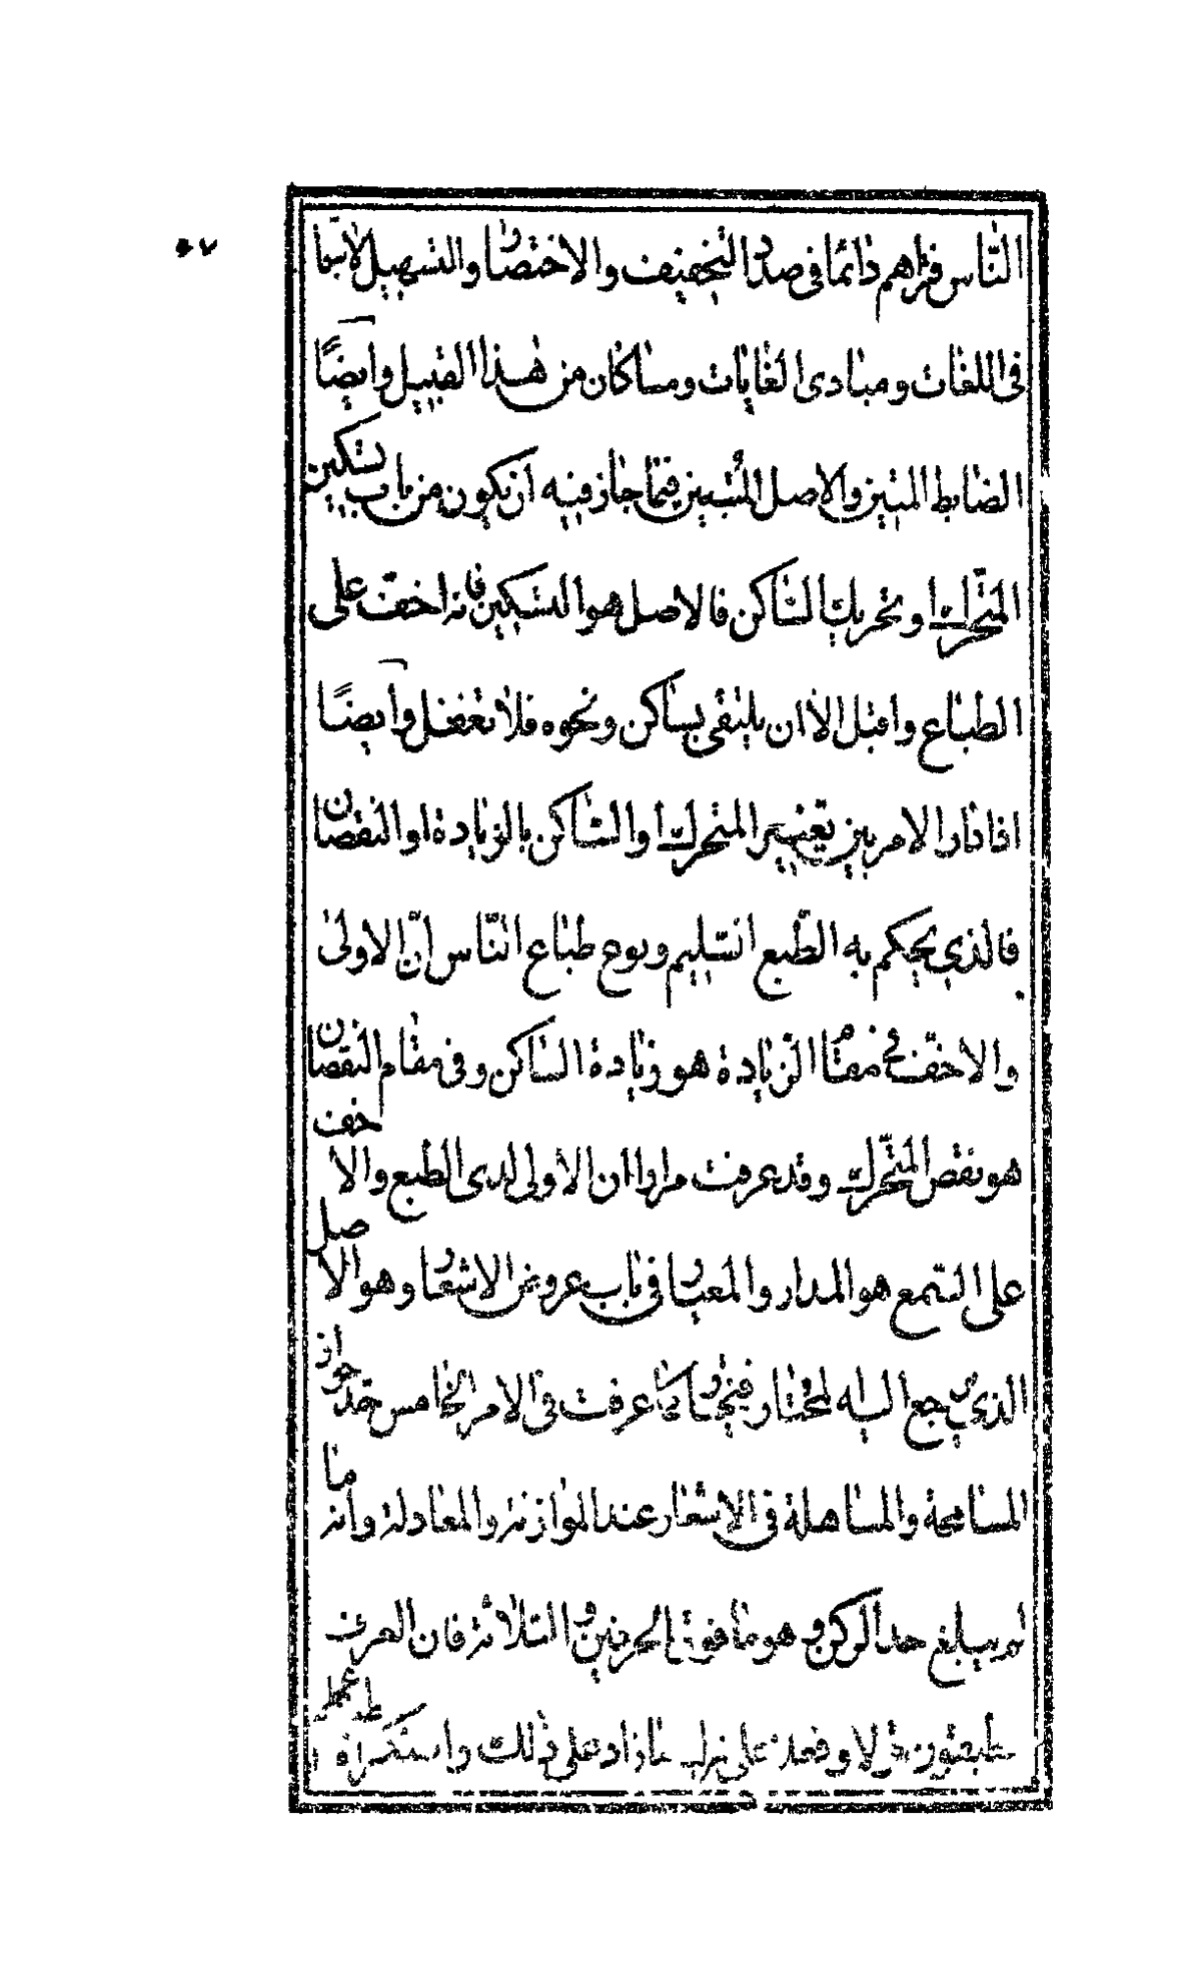 ٤٧
النّاس فتراهم دائمًا فى صدد التخفيف والاختصار والتسهيل لاسيّما
فى اللغات ومبادى الغايات ومساكان من هذا القبيل وايضًا
الضابط المتين والاصل المُتبيّن فيمّا جاز فيه ان يكون من باب تسكين
المتحرّك او تحريك السّاكن فالاصل هو التسكين فانه اخفّ على
الطباع واقبل الا ان يلتقى بساكن ونحوه فلا تغفل وايضًا
اذا دار الامر بين تغيير المتحرّك او السّاكن بالزيادة او النقصان
فالذي يحكم به الطّبع السّليم وبوح طباع النّاس انّ الاولىٰ
والاخفّ فى مقام الزّيادة هو زيادة الساكن وفى مقام النقصان
هو نقص المتحرّك وقد عرفت مرارا ان الاولى لدى الطبع والاخف
على السّمع هو المدار والمعيار فى باب عروض الاشعار وهو الاصل
الذي يرجع اليه المختار فيختار كما عرفت فى الامر الخامس حَدّ جواز
المسامحة والمساهلة فى الاشعار عند الموازنة والمعادلة وانه ما
لم يبلغ حد الركن وهو ما فوق الحرفين والثلاثة فان العرف
يطبعون قولا وفعلا على ترك ما زاد على ذلك واستكراه